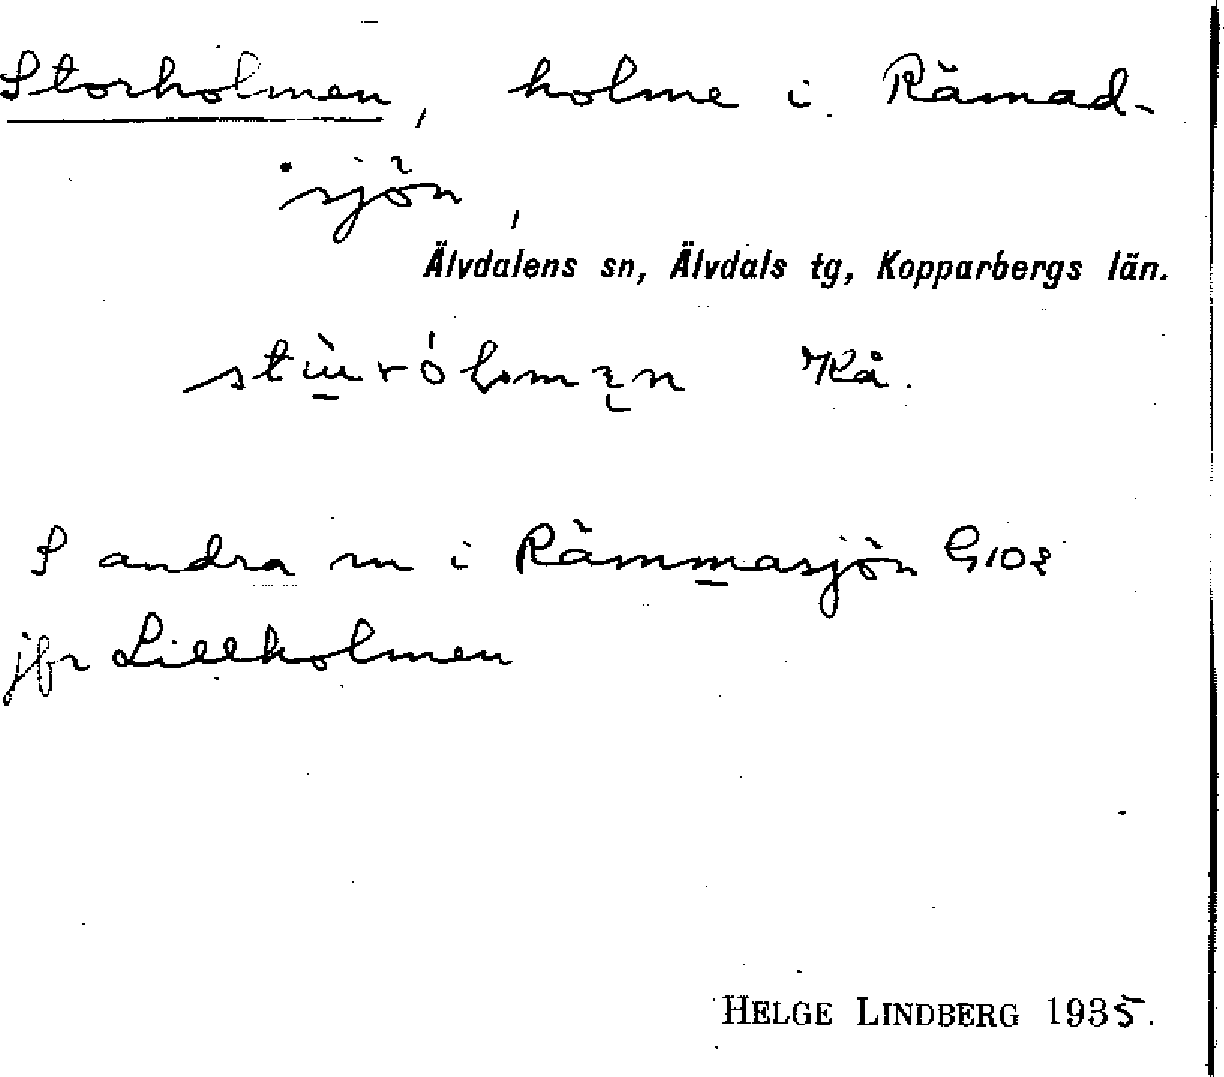 Storholmen, holme i Rämad-
sjön,
Älvdalens sn, Älvdals tg, Kopparbergs län.
S andra m i Rämmasjön G102
jfr Lillholmen
HELGE LINDBERG 1935.